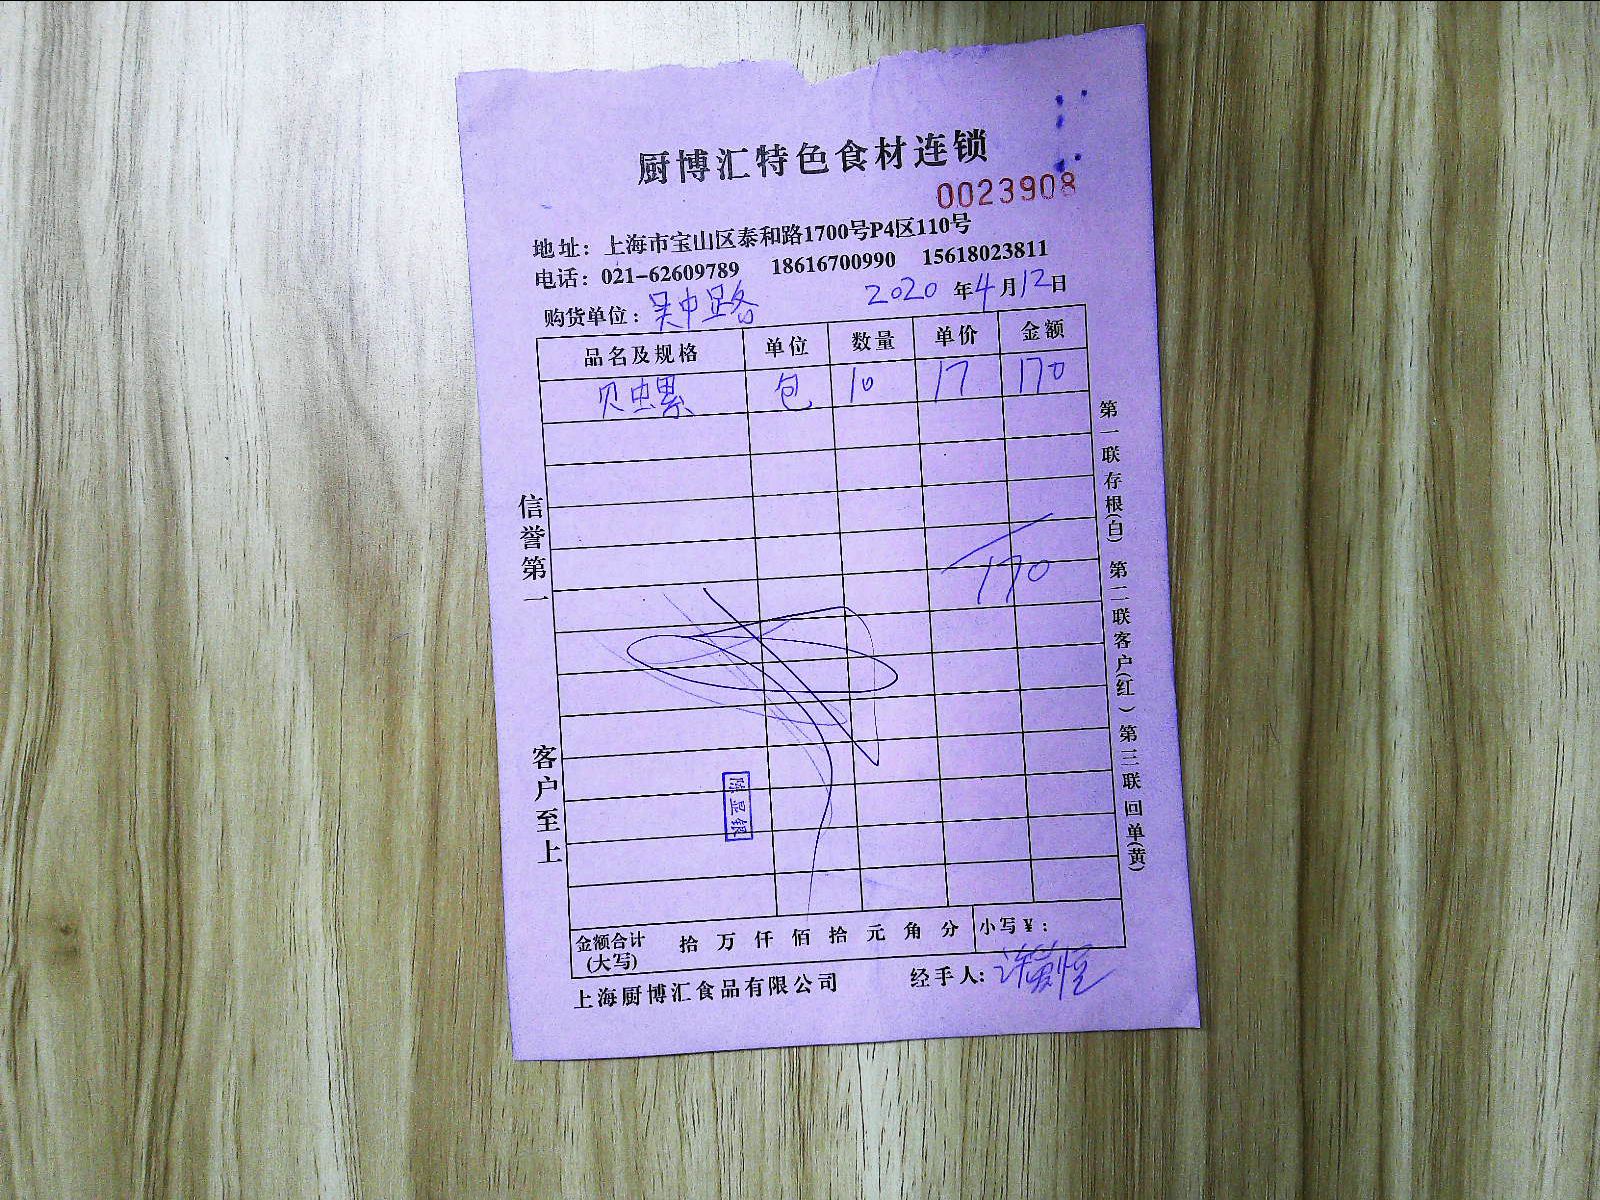 厨博汇特色食材连锁
0023908
地址：上海市宝山区泰和路1700号P4区110号
电话：021-62609789 18616700990 15618023811
购货单位：吴中路 2020年4月12日
品名及规格 单位 数量 单价 金额
贝螺 包 10 17 170
170
信誉第一
客户至上
第一联存根(白) 第二联客户(红) 第三联回单(黄)
金额合计(大写) 拾 万 仟 佰 拾 元 角 分 小写¥：
上海厨博汇食品有限公司 经手人: